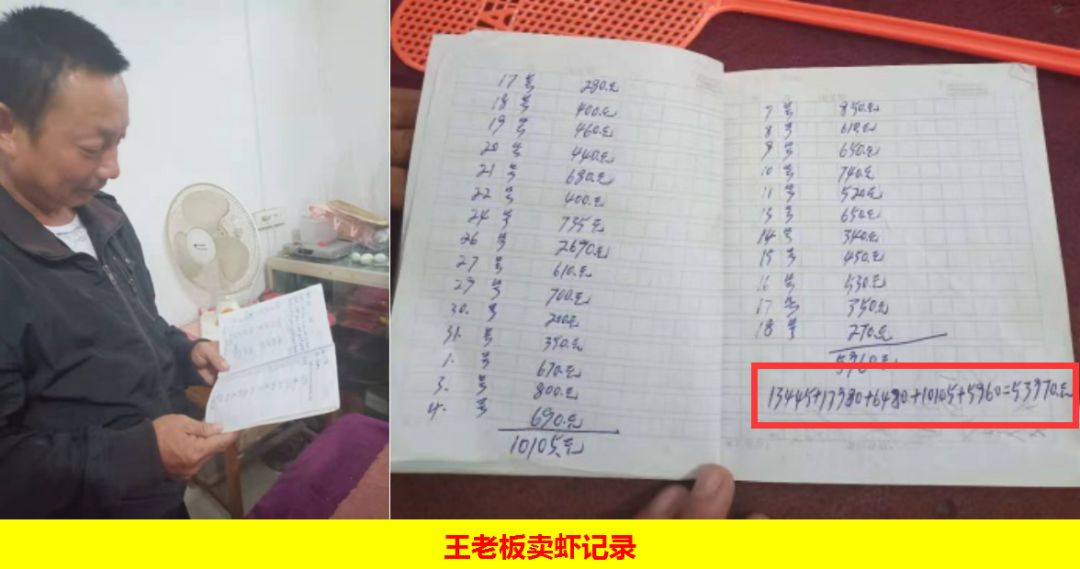 17号 280.元
18号 400.元
19号 460.元
20号 440.元
21号 680.元
22号 400.元
24号 735元
26号 2690.元
27号 610.元
29号 700.元
30.号 200.元
31.号 350.元
1.号 670.元
3.号 800.元
4.号 690.元
10105元
7号 850.元
8号 610.元
9号 650.元
10号 740.元
11号 520.元
13号 650.元
14号 340.元
15号 450.元
16号 530.元
17号 350.元
18号 270.元
5960元
13445+17380+6480+10105+5960=53370.元
王老板卖虾记录